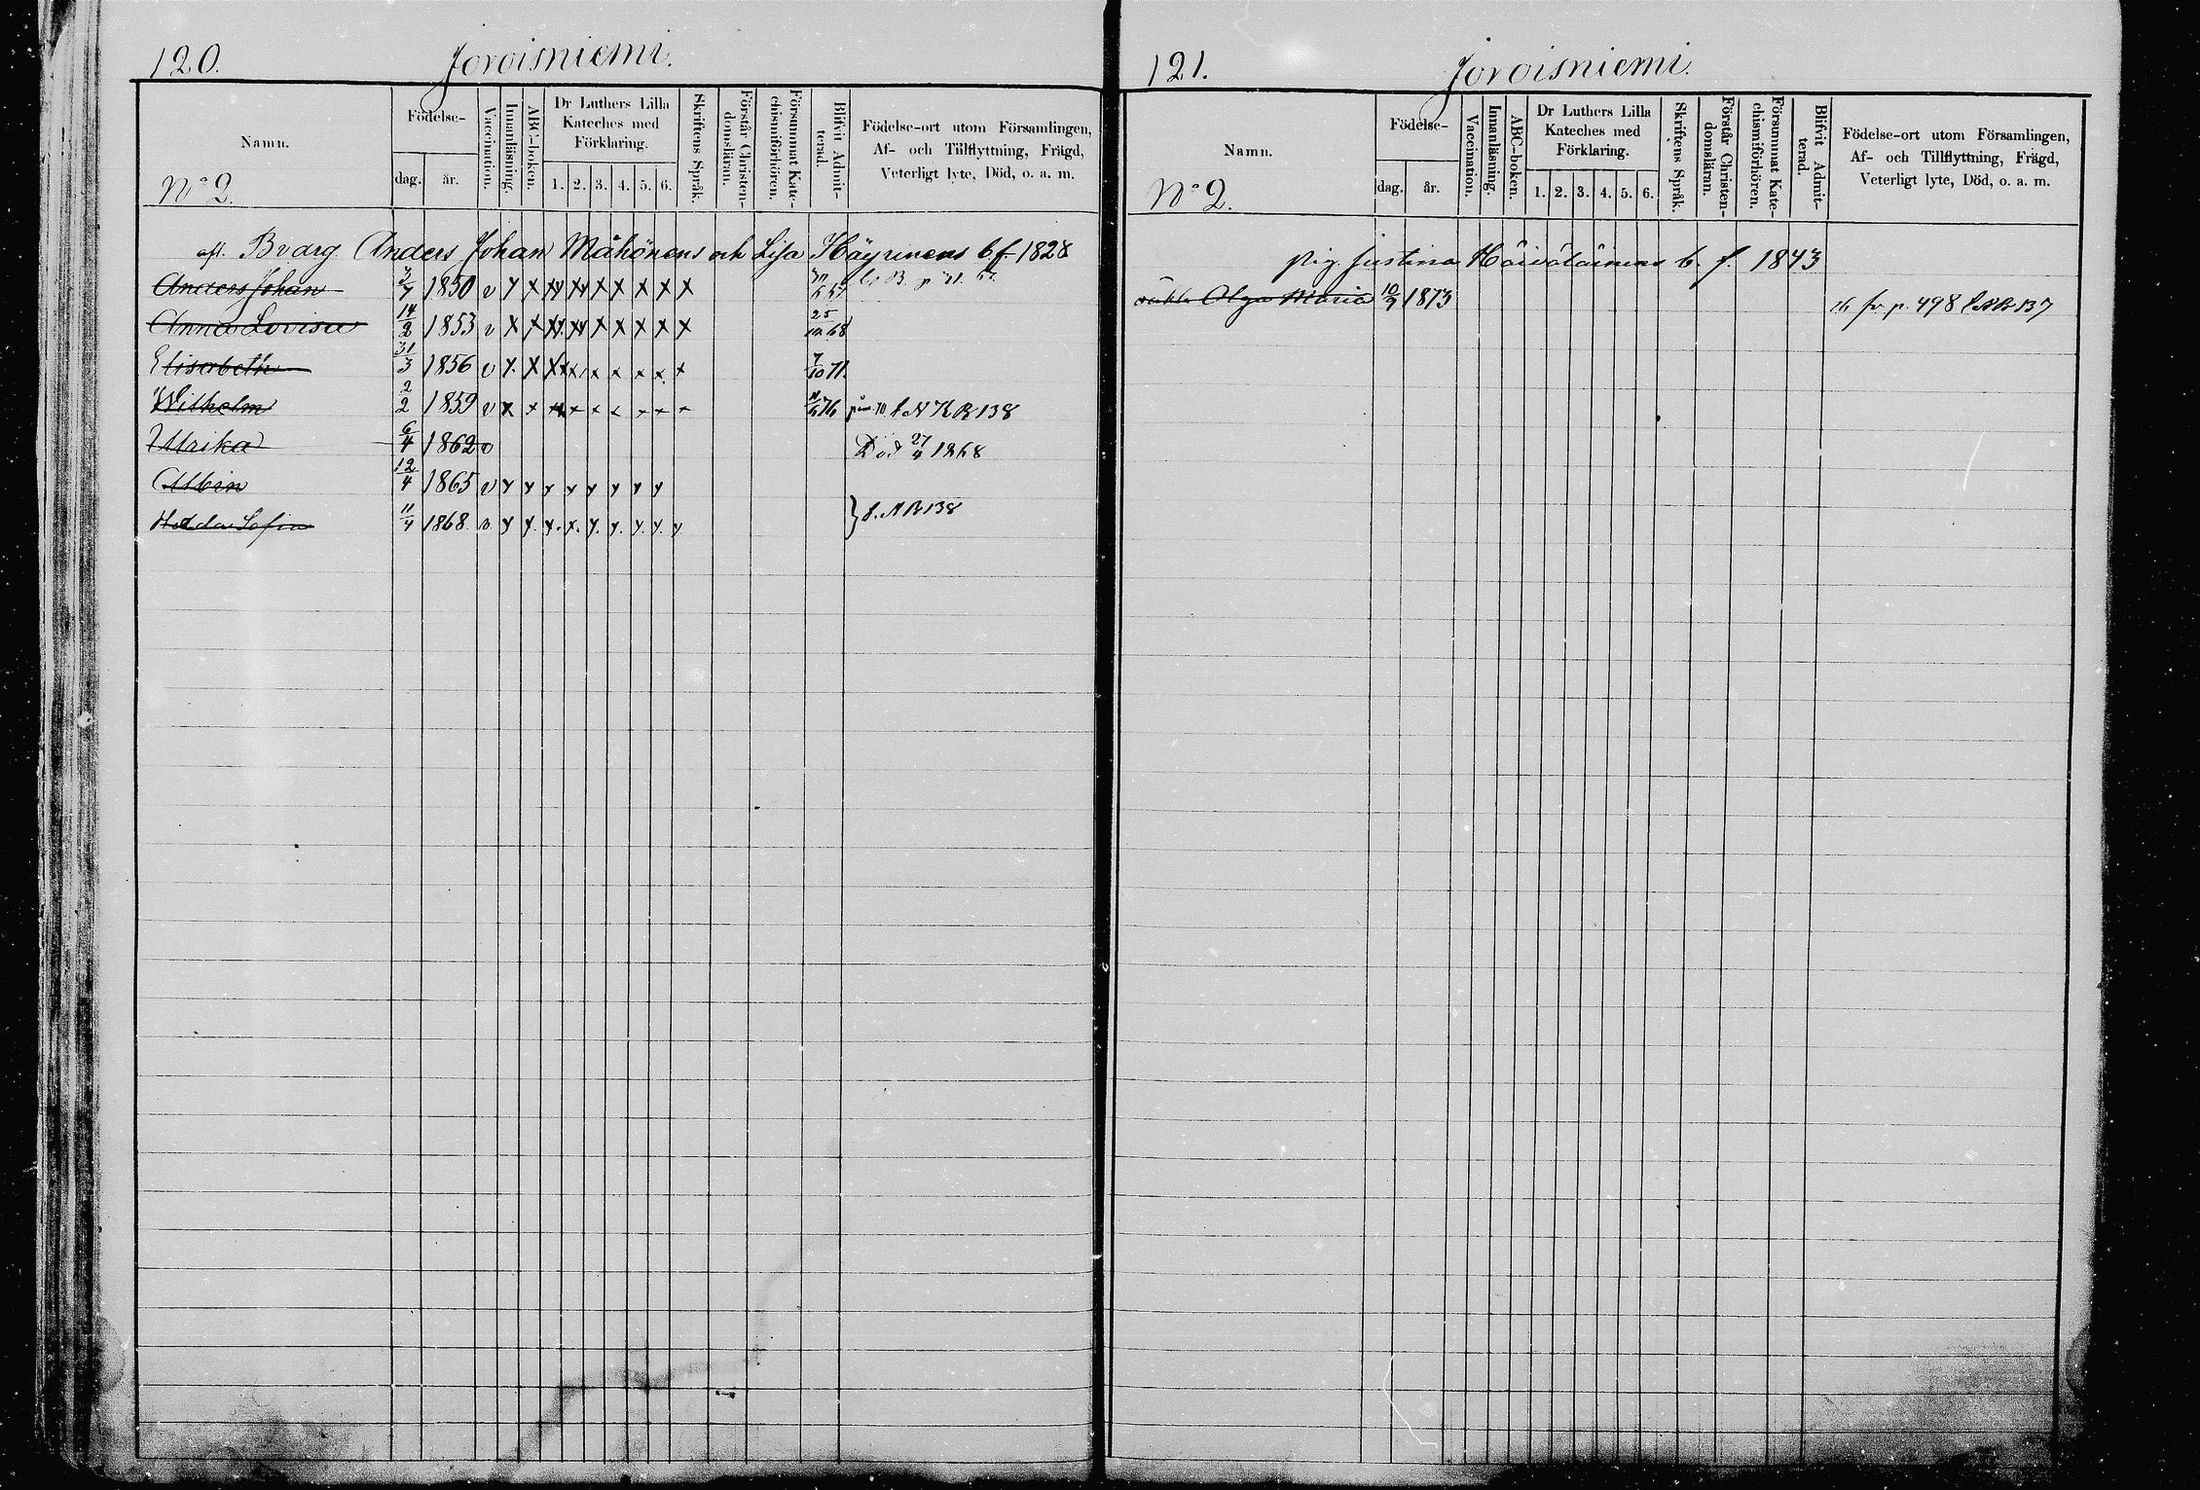 120. Joroisniemi.
Namn.
No 2.
Födelse-
dag. år.
Vaccination.
Innanläsning.
ABC-boken.
Dr Luthers Lilla Kateches med Förklaring.
1. 2. 3. 4. 5. 6.
Skriftens Språk.
Förstår Christendomsläran.
Försummat Katechismiförhören.
Blifvit Admitterad.
Födelse-ort utom Församlingen,
Af- och Tillflyttning, Frägd,
Veterligt lyte, Död, o. a. m.
afl. Bvarg Anders Johan Måhönens och Lisa Häyrinens b. f. 1828
Anders Johan 1850 v y x x x x x x x x
Anna Lovisa 14/2 1853 v x x x x x x x x x 25/10 68
Elisabeth 31/3 1856 v y. x x x x x x x x 7/10 71.
Wilhelm 2/2 1859 v x x x x x x x x x 76 l. N K B 138
Ulrika 6/4 1862 v Död 1868
Albin 12/4 1865 v y y y y y y y y
Hedda Sofia 11/4 1868. v. y y. y. y. y. y. y. y. y
} l. N B 138
121. Joroisniemi.
Namn.
No 2.
Födelse-
dag. år.
Vaccination.
Innanläsning.
ABC-boken.
Dr Luthers Lilla Kateches med Förklaring.
1. 2. 3. 4. 5. 6.
Skriftens Språk.
Förstår Christendomsläran.
Försummat Katechismiförhören.
Blifvit Admitterad.
Födelse-ort utom Församlingen,
Af- och Tillflyttning, Frägd,
Veterligt lyte, Död, o. a. m.
pig. Justina b. f. 1843
Olga Maria 10/9 1873 fr p. 498 l. N B 137